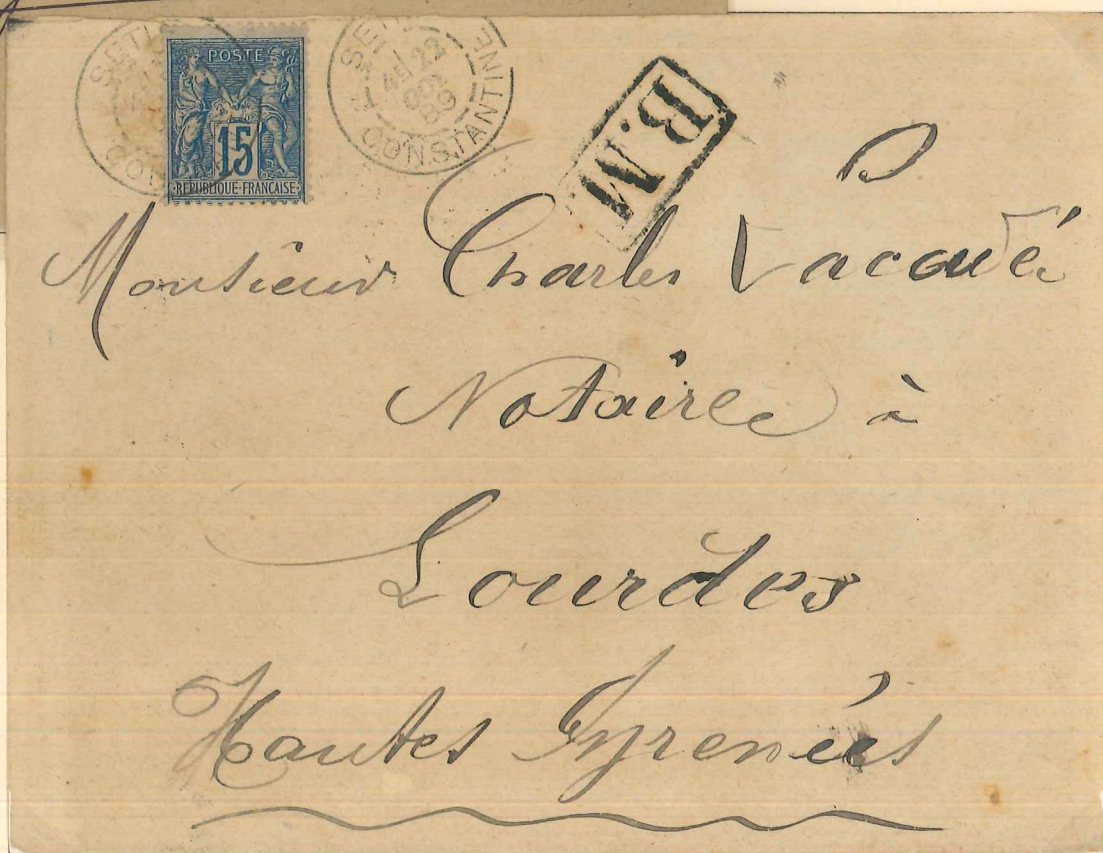 POSTE
15
RÉPUBLIQUE FRANÇAISE
SETI
CONSTANTINE
22
89
B.M
Monsieur Charles Lacoué
Notaire à
Lourdes
Hautes Pyrenées